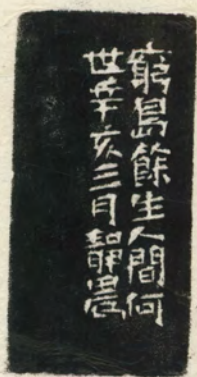 窮島餘生人間何
世辛亥三月靜農